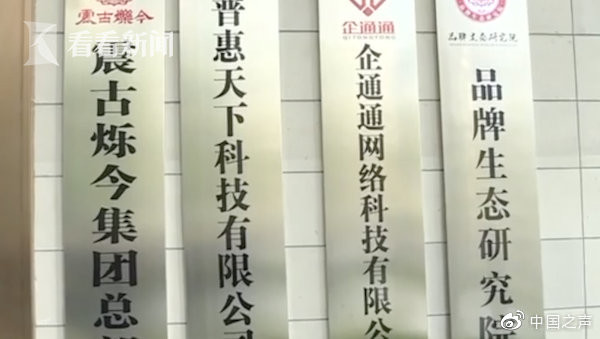 震古烁今
看看新闻
震古烁今集团总部
普惠天下科技有限公司
企通通
QITONGTONG
企通通网络科技有限公
品牌生态研究院
品牌生态研究院
中国之声